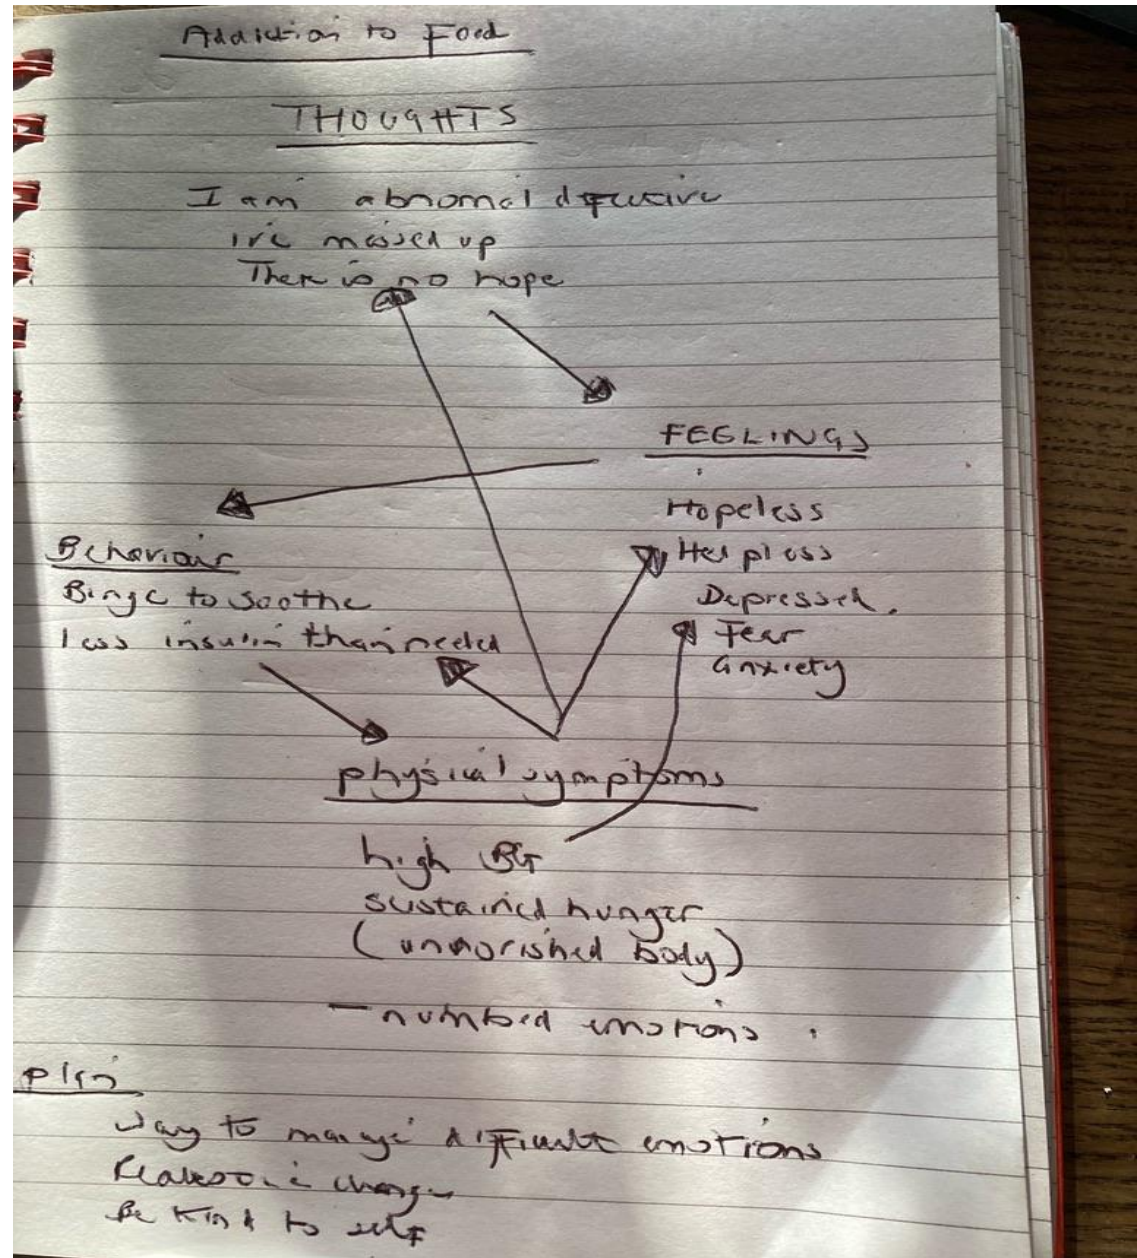 Addiction to Food
THOUGHTS
I am abnomal defective
I've messed up
There is no hope
FEELINGS
Hopeless
Helpless
Depressed.
Fear
anxiety
Behaviour
Binge to soothe
less insulin than needed
physical symptoms
high BG
sustained hunger
(unnorished body)
- numbed emotions
plan
way to manage difficult emotions
Realistic change
Be kind to self